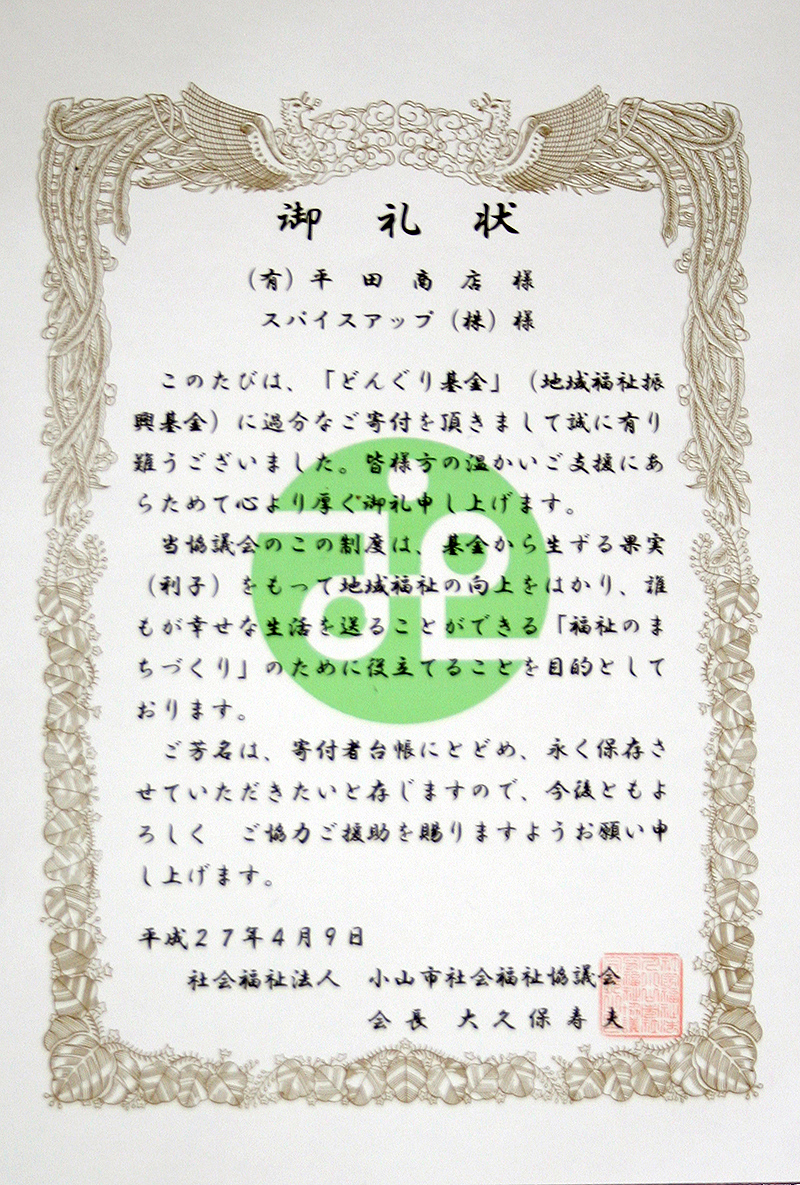 御礼状
(有)平田商店様
スパイスアップ(株)様
このたびは、「どんぐり基金」(地域福祉振
興基金)に過分なご寄付を頂きまして誠に有り
難うございました。皆様方の温かいご支援にあ
らためて心より厚ぐ御礼申し上げます。
当協議会のこの制度は、基金から生ずる果実
(利子)をもって地域福祉の向上をはかり、誰
もが幸せな生活を送ることができる「福祉のま
ちづくり」のために役立てることを目的として
おります。
ご芳名は、寄付者台帳にとどめ、永く保存さ
せていただきたいと存じますので、今後ともよ
ろしく ご協力ご援助を賜りますようお願い申
し上げます。
平成27年4月9日
社会福祉法人 小山市社会福祉協議会
会長 大久保寿夫